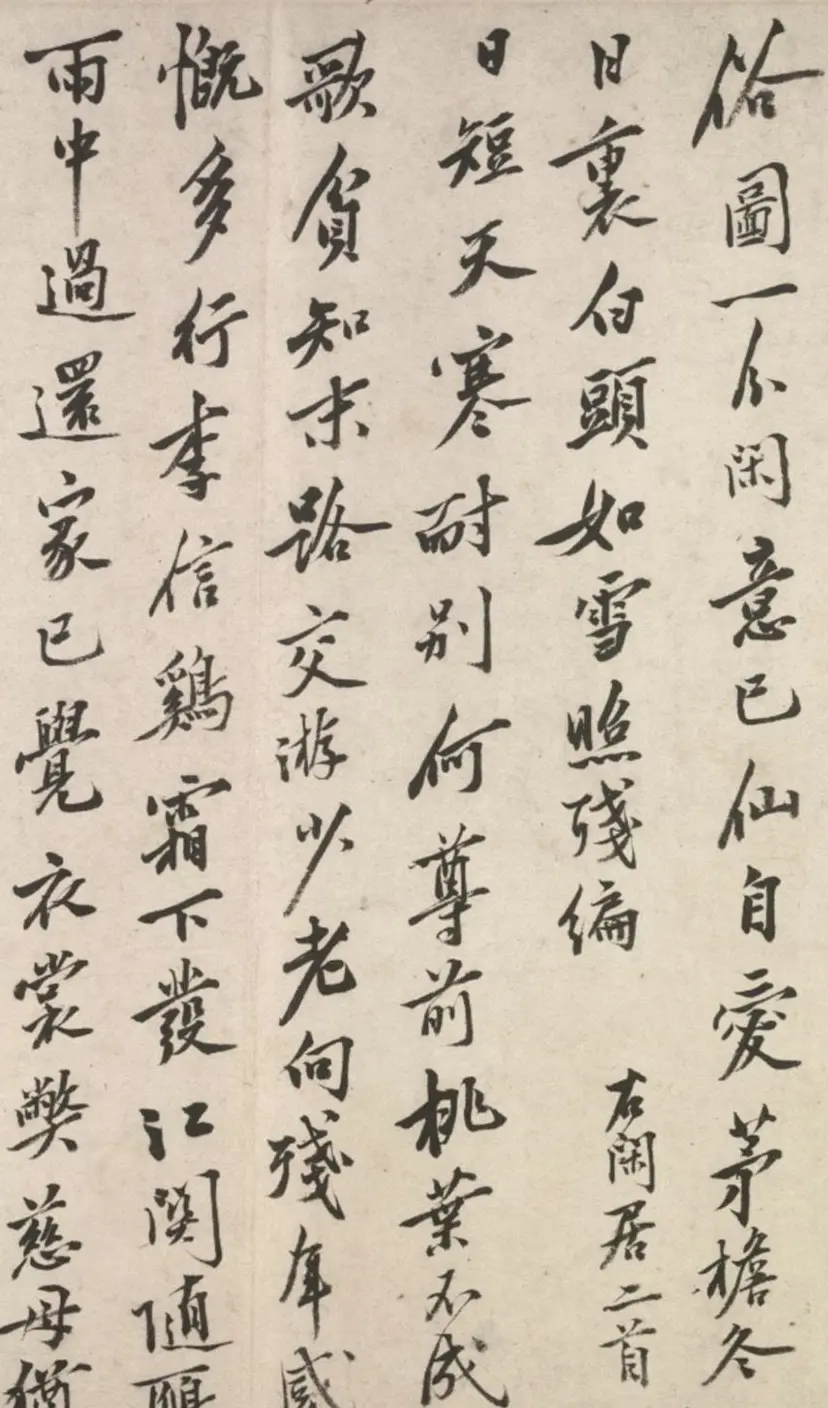 俗圖一ト閑意已仙自愛茅檐冬
日裏白頭如雪照殘編
右閑居二首
日短天寒耐別何尊前桃葉不成
歌貧知末路交游少老向殘年感
慨多行李信鷄霜下發江関隨
雨中過還家已覺衣裳獘慈母猶